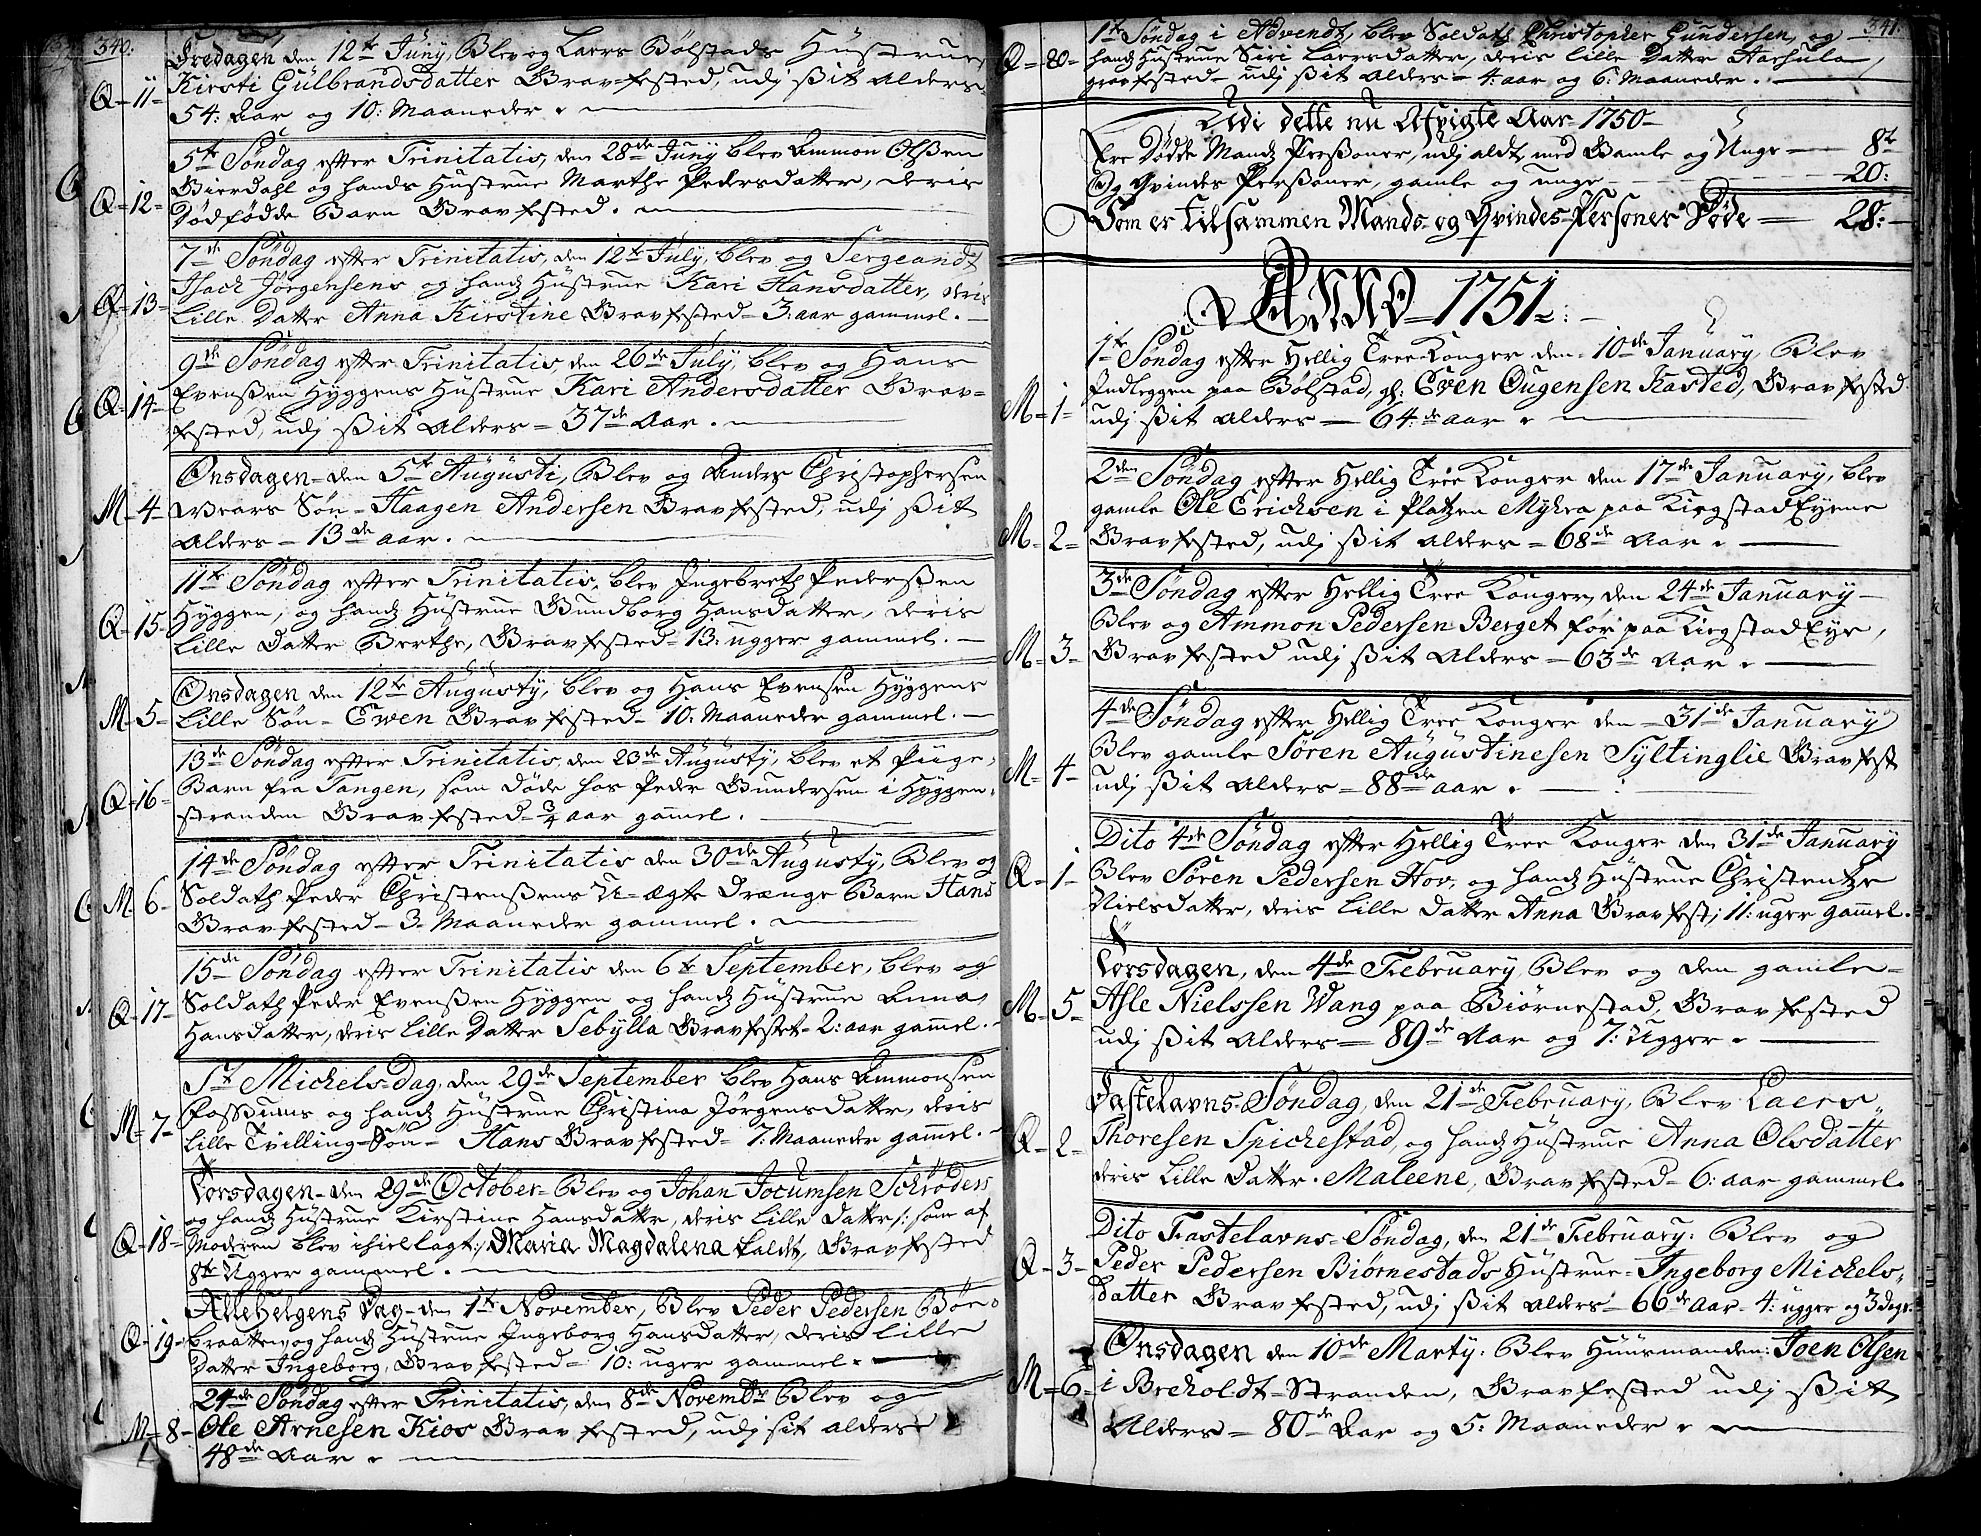 340.
Fredagen den 12te Juny, Blev og Laers Bølstads Hustrue,
Q - 11 - Kirsti Gulbrandsdatter Gravfested, udj ßit Alders
54: Aar og 10: Maaneder.
5te Søndag efter Trinitatis, den 28de Juny blev Ammon Olßen
Q - 12 - Bierdahl og hands Hustrue Marthe Pedersdatter, deris
Dødfødde Barn Gravfested.
7de Søndag efter Trinitatis, den 12te July, blev og Sergeandt
Q - 13 - Isach Jørgensens og hands Hustrue Kari Hansdatter, deris
Lille Datter Anna Kirstine Gravfested - 3: aar gammel.
9de Søndag efter Trinitatis, den 26de July, blev og Hans
Q - 14 - Evenßen Hyggens Hustrue Kari Andersdatter Grav-
fested, udj ßit Alders - 37de Aar.
Onsdagen - den 5te Augusti, Blev og Anders Christophersen
M - 4 - Wears Søn - Haagen Andersen Gravfested, udj ßit
Alders - 13de aar.
11te Søndag efter Trinitatis, blev Ingebreth Pederßen
Q - 15 - Hyggen, og hands Hustrue Gundborg Hansdatter, deris
Lille Datter Berthe, Gravfested - 13: ugger gammel.
Onsdagen den 12te Augusty, blev og Hans Evensen Hyggens
M - 5 - Lille Søn - Ewen Gravfested - 10: Maaneder gammel.
13de Søndag efter Trinitatis, den 23de Augusty, blev et Piige-
Q - 16 - Barn fra Tangen, som døde hos Peder Gundersen i Hyggen-
stranden Gravfested - 3/4 aar gammel.
14de Søndag efter Trinitatis den 30de Augusty, Blev og
M 6 - Soldath Peder Christenßens U-ægte Drænge Barn Hans
Gravfested - 3 - Maaneder gammel.
15de Søndag efter Trinitatis den 6te September, blev og
Q - 17 - Soldath Peder Evenßen Hyggen og hands Hustrue Anna
Hansdatter, deris Lille Datter Sebylla Gravfestet - 2: aar gammel.
St Michels-Dag, den 29de September blev Hans Ammonsen
M - 7 - Foßums og hands Hustrue Christina Jørgensdatter, deris
Lille Tvilling-Søn - Hans Gravfested - 7: Maaneder gammel.
Torsdagen - den 29de October - Blev og Johan Jocumsen Schrøders
Q - 18 - og hands Hustrue Kirstine Hansdatter, deris Lille Datter /: som af
Moderen blev ihiellagt :/ Maria Magdalena kaldt, Gravfested
8te Ugger gammel.
AlleHelgens Dag - den 1te November, Blev Peder Pedersen Bøn-
Q - 19 - braatten, og hands Hustrue Ingeborg Hansdatter, deris lille
datter Ingeborg, Gravfested - 10: uger gammel.
24de Søndag efter Trinitatis, den 8de Novembr Blev og
M - 8 - Ole Arnesen Kios Gravfested, udj sit alders
48de Aar.
341.
1te Søndag i Advendt, blev Soldath Christopher Gundersen, og
Q - 20 - hands Hustrue Siri Laersdatter, deris lille Datter Aarsula,
gravfested - udj ßit Alders - 4: aar og 6: Maaneder.
Udi dette nu Afvigte Aar 1750 -
Ere Dødde Mands Perßoner, udj aldt, med Gamle og Unge - 8te
Og Qvindes Perßoner, gamle og unge - 20:
Som er tilsammen Mands- og Qvindes-Personer Døde - 28:
ANNO 1751.
1te Søndag efter Hellig Tree-Konger den - 10de January, Blev
M - 1 - Indleggen paa Bølstad, gl: Even Ougensen Kasted, Gravfested
udj ßit Alders - 64de aar.
2den Søndag efter Hellig Tree Konger den 17de January, blev
gamle Ole Erichsen i Platzen Myhra paa Kiøgstad Eyene
M - 2 - Gravfested, udj ßit Alders - 68de Aar.
3de Søndag efter Hellig Tree Konger, den 24de January -
Blev og Ammon Pedersen Berget før paa Kiøgstad Eye,
M - 3 - Gravfested udj ßit Alders - 63de Aar.
4de Søndag efter Hellig Tree Konger den - 31de January
Blev gamle Søren Augustinesen Syltinglie Gravfest
M - 4 - udj ßit Alders - 88de aar.
Dito 4de Søndag efter Hellig Tree Konger den 31de January
Q - 1 - Blev Søren Pedersen Hov, og hands Hustrue Christentze
Nielsdatter, deris lille datter Anna Gravfest; 11: uger gammel.
Torsdagen, den 4de February Blev og den gamle -
M - 5 - Asle Nielssen Wang paa Biørnestad, Gravfested
udj ßit Alders - 89de Aar og 7: Ugger.
Fastelavns-Søndag, den 21de February, Blev Laers
Q - 2 - Thoresen Spichestad, og hands Hustrue Anna Olsdatter
deris Lille Datter - Maleene, Gravfested - 6: aar gammel.
Dito Fastelavns-Søndag, den 21de February: Blev og
Q - 3 - Peder Pedersen Biørnestads Hustrue - Ingeborg Michels-
datter Gravfested, udj ßit Alders - 66de Aar - 4: ugger og 3 dage.
Onsdagen den 10de Marty: Blev Huusmanden: Joen Olsen
M - 6 - i Breholdt-Stranden, Gravfested udj ßit
Alders - 80de Aar og 5: Maaneder.